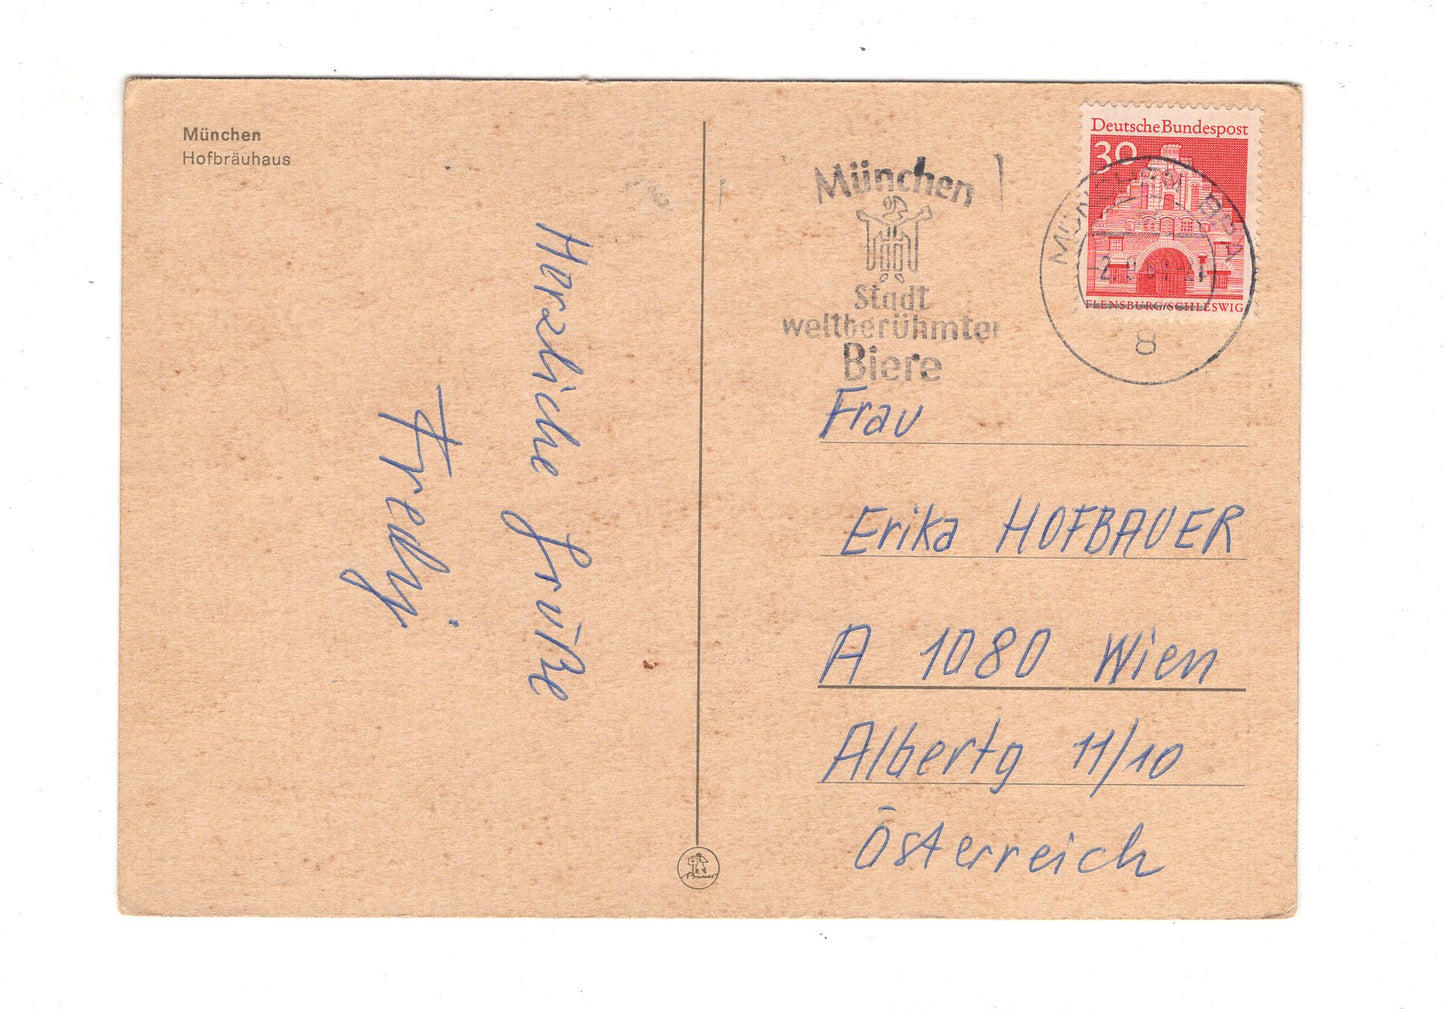 München
Hofbräuhaus
Herzliche Grüße
Fredy
München
Stadt
weltberühmter
Biere
Deutsche Bundespost
30
FLENSBURG/SCHLESWIG
MÜNCHEN BPA
8
Frau
Erika HOFBAUER
A 1080 Wien
Albertg 11/10
Österreich